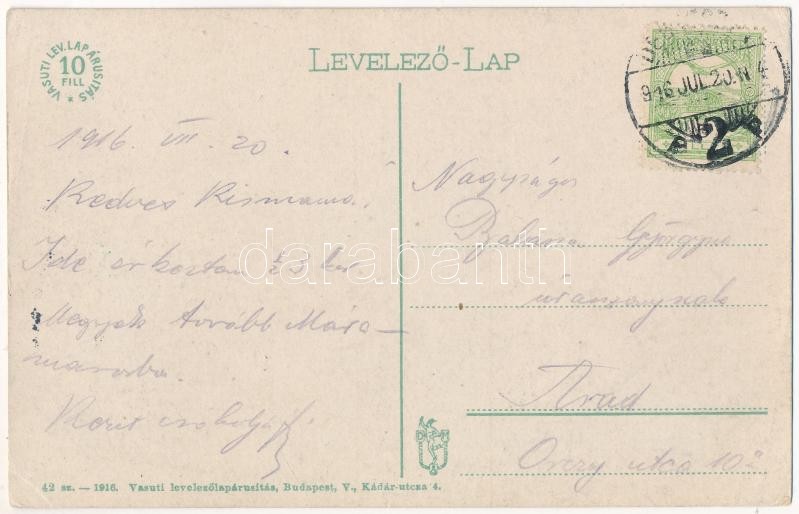 VASUTI LEV.LAPÁRUSITÁS
10
FILL
LEVELEZŐ-LAP
916 JUL 20. N
2
1916 VII. 20.
Kedves Kismama.
Ide érkeztem ½ 3 kor.
Megyek tovább Mára-
marosba.
Kezit csókolja
Nagyságos
György
úrasszonynak
Arad
Orczy utca 10
darabanth
42 sz. — 1916. Vasuti levelezőlapárusitás, Budapest, V., Kádár-utcza 4.